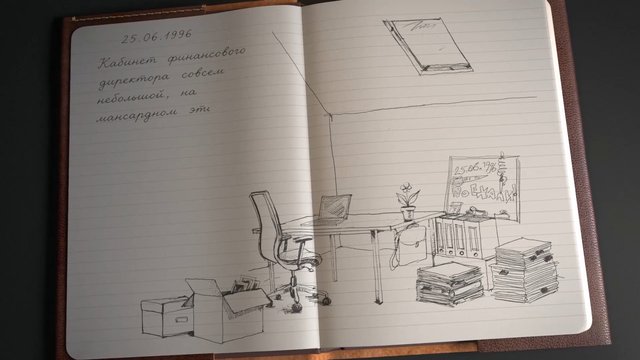 25.06.1996
Кабинет финансового
директора совсем
небольшой, на
мансардном эти
25.06.1996